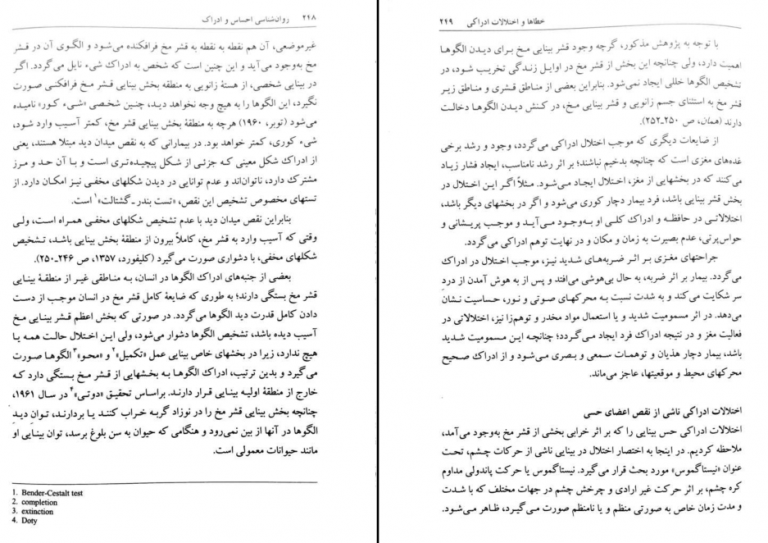 ۲۴۸ روان‌شناسی احساس و ادراک
غیرموضعی، آن هم نقطه به نقطه به قشر مخ فرافکنده می‌شود و الگوی آن در قشر
مخ به‌وجود می‌آید و این چنین است که شخص به ادراک شیء نایل می‌گردد. اگر
در بینایی شخصی، از هستهٔ زانویی به منطقهٔ بخش بینایی قشر مخ فرافکنی صورت
نگیرد، این الگوها را به هیچ وجه نخواهد دید، چنین شخصی «شیء کور» نامیده
می‌شود (توبر، ۱۹۶۰) هرچه به منطقهٔ بخش بینایی قشر مخ، کمتر آسیب وارد شود،
شیء کوری، کمتر خواهد بود. در بیمارانی که به نقص میدان دید مبتلا هستند، یعنی
از ادراک شکل معینی که جزئی از شکل پیچیده‌تری است و با آن حد و مرز
مشترک دارد، ناتوان‌اند و عدم توانایی در دیدن شکلهای مخفی نیز امکان دارد. از
تستهای مخصوص تشخیص این نقص، «تست بندر ـ گشتالت»۱ است.
بنابراین نقص میدان دید با عدم تشخیص شکلهای مخفی همراه است، ولی
وقتی که آسیب وارد به قشر مخ، کاملاً بیرون از منطقهٔ بخش بینایی باشد، تشخیص
شکلهای مخفی، با دشواری صورت می‌گیرد (کلیفورد، ۱۳۵۷، ص ۲۴۶ـ۲۵۰).
بعضی از جنبه‌های ادراک الگوها در انسان، به مناطقی غیر از منطقهٔ بینایی
قشر مخ بستگی دارند؛ به طوری که ضایعهٔ کامل قشر مخ در انسان موجب از دست
دادن کامل قدرت دید الگوها می‌گردد. در صورتی که بخش اعظم قشر بینایی مخ
آسیب دیده باشد، تشخیص الگوها دشوار می‌شود، ولی این اختلال حالت همه یا
هیچ ندارد، زیرا در بخشهای خاص بینایی عمل «تکمیل»۲ و «محو»۳ الگوها صورت
می‌گیرد و بدین ترتیب، ادراک الگوها به بخشهایی از قشر مخ بستگی دارد که
خارج از منطقهٔ اولیه بینایی قرار دارند. براساس تحقیق «دوتی»۴ در سال ۱۹۶۱،
چنانچه بخش بینایی قشر مخ را در نوزاد گربه خراب کنند یا بردارند، توان دید
الگوها در آنها از بین نمی‌رود و هنگامی که حیوان به سن بلوغ برسد، توان بینایی او
مانند حیوانات معمولی است.
1. Bender-Cestalt test
2. completion
3. extinction
4. Doty
خطاها و اختلالات ادراکی ۲۴۹
با توجه به پژوهش مذکور، گرچه وجود قشر بینایی مخ برای دیدن الگوها
اهمیت دارد، ولی چنانچه این بخش از قشر مخ در اوایل زندگی تخریب شود، در
تشخیص الگوها خللی ایجاد نمی‌شود. بنابراین بعضی از مناطق قشری و مناطق زیر
قشر مخ به استثنای جسم زانویی و قشر بینایی مخ، در کنش دیدن الگوها دخالت
دارند (همان، ص ۲۵۰ـ۲۵۲).
از ضایعات دیگری که موجب اختلال ادراکی می‌گردد، وجود و رشد برخی
غده‌های مغزی است که چنانچه بدخیم نباشند؛ بر اثر رشد نامناسب، ایجاد فشار زیاد
می‌کنند که در بخشهایی از مغز، اختلال ایجاد می‌شود. مثلاً اگر این اختلال در
بخش قشر بینایی باشد، فرد بیمار دچار کوری می‌شود و اگر در بخشهای دیگر باشد،
اختلالاتی در حافظه و ادراک کلی او به‌وجود می‌آید و موجب پریشانی و
حواس‌پرتی، عدم بصیرت به زمان و مکان و در نهایت توهم ادراکی می‌گردد.
جراحتهای مغزی بر اثر ضربه‌های شدید نیز، موجب اختلال در ادراک
می‌گردد. بیمار بر اثر ضربه، به حال بی‌هوشی می‌افتد و پس از به هوش آمدن از درد
سر شکایت می‌کند و به شدت نسبت به محرکهای صوتی و نور، حساسیت نشان
می‌دهد. در اثر مسمومیت شدید و یا استعمال مواد مخدر و توهم‌زا نیز، اختلالاتی در
فعالیت مغز و در نتیجه ادراک فرد ایجاد می‌گردد؛ چنانچه این مسمومیت شدید
باشد، بیمار دچار هذیان و توهمات سمعی و بصری می‌شود و از ادراک صحیح
محرکهای محیط و موقعیتها، عاجز می‌ماند.
اختلالات ادراکی ناشی از نقص اعضای حسی
اختلالات ادراکی حس بینایی را که بر اثر خرابی بخشی از قشر مخ به‌وجود می‌آمد،
ملاحظه کردیم. در اینجا به اختصار اختلال در بینایی ناشی از حرکات چشم، تحت
عنوان «نیستاگموس» مورد بحث قرار می‌گیرد. نیستاگموس یا حرکت پاندولی مداوم
کره چشم، بر اثر حرکت غیر ارادی و چرخش چشم در جهات مختلف که با شدت
و مدت زمان خاص به صورتی منظم و یا نامنظم صورت می‌گیرد، ظاهر می‌شود.